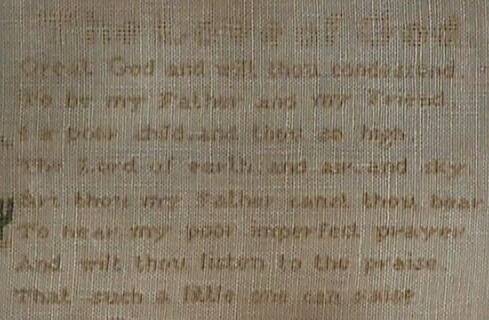 The Love of God
Great God and wilt thou condescend
To be my Father and my Friend
I a poor child and thou so high
The Lord of earth and air and sky
Art thou my Father canst thou bear
To hear my poor imperfect prayer
And wilt thou listen to the praise
That such a little one can raise